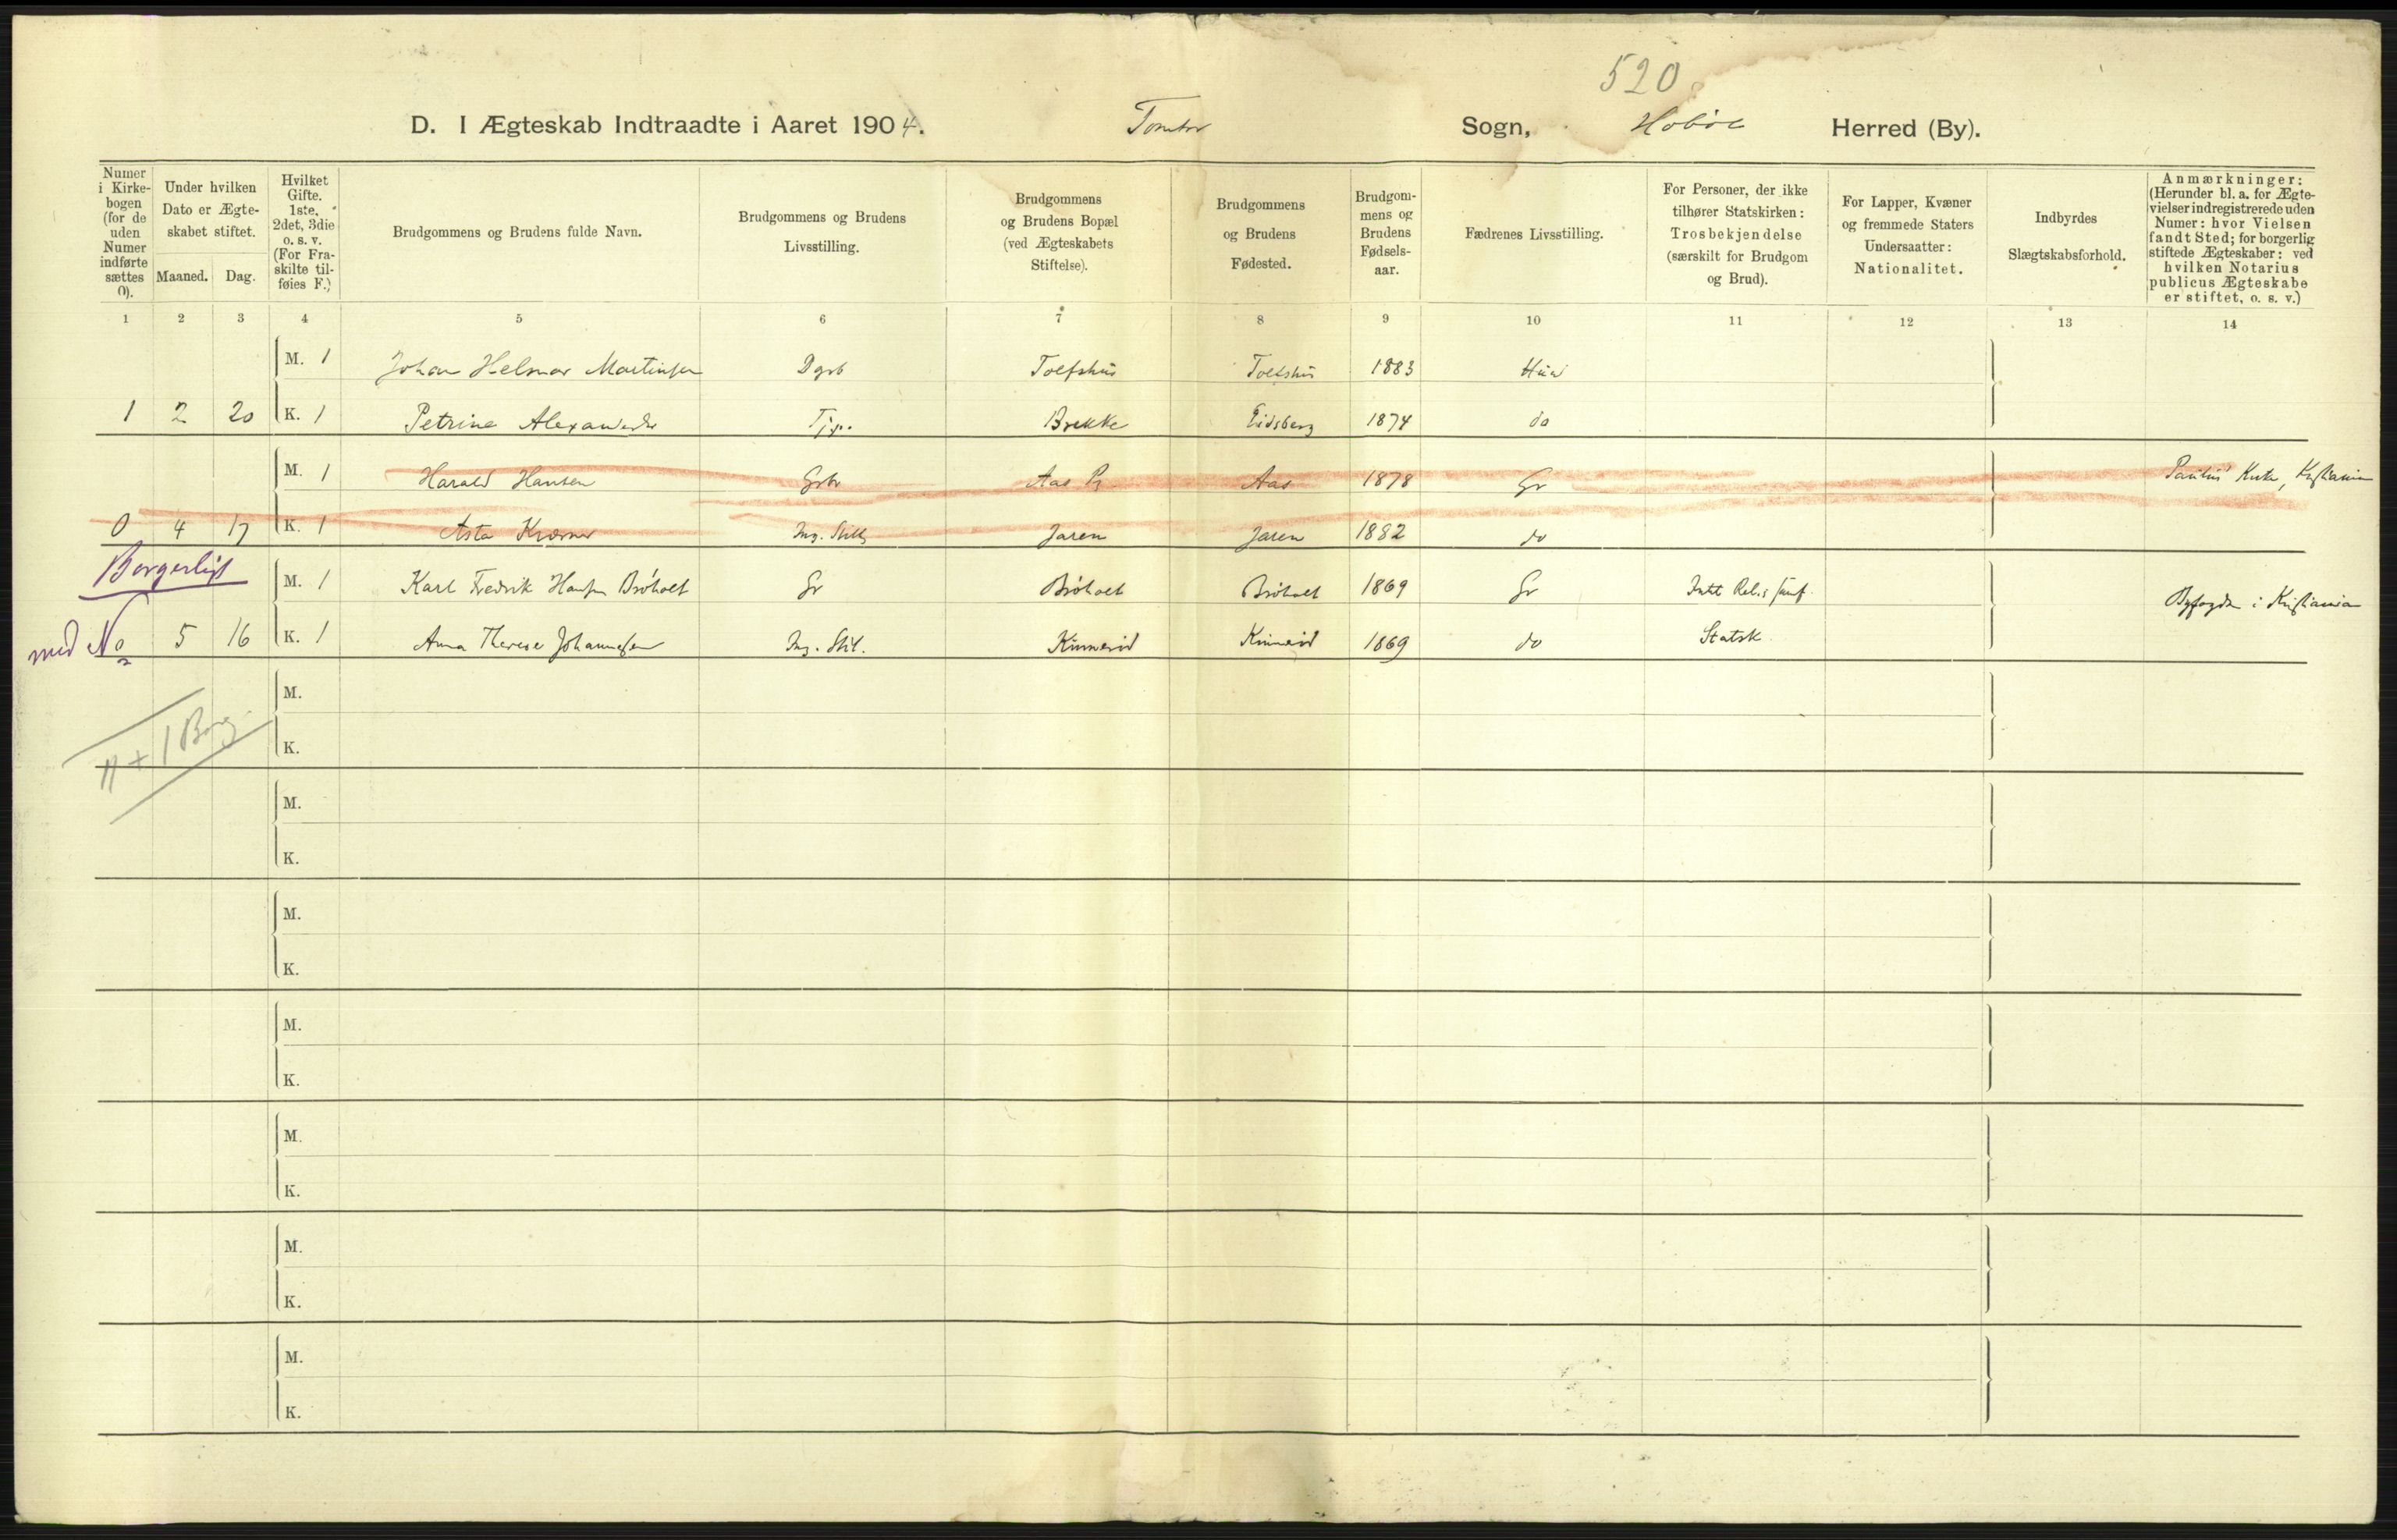 520
D. I Ægteskab Indtraadte i Aaret 1904. Tomter Sogn, Hobøl Herred (By).
Numer i Kirkebogen (for de uden Numer indførte sættes 0).
Under hvilken Dato er Ægteskabet stiftet.
Maaned. Dag.
Hvilket Gifte. 1ste, 2det, 3die o. s. v. (For Fraskilte tilføies F.)
Brudgommens og Brudens fulde Navn.
Brudgommens og Brudens Livsstilling.
Brudgommens og Brudens Bopæl (ved Ægteskabets Stiftelse).
Brudgommens og Brudens Fødested.
Brudgommens og Brudens Fødselsaar.
Fædrenes Livsstilling.
For Personer, der ikke tilhører Statskirken: Trosbekjendelse (særskilt for Brudgom og Brud).
For Lapper, Kvæner og fremmede Staters Undersaatter: Nationalitet.
Indbyrdes Slægtskabsforhold.
Anmærkninger: (Herunder bl. a. for Ægtevielser indregistrerede uden Numer: hvor Vielsen fandt Sted; for borgerlig stiftede Ægteskaber: ved hvilken Notarius publicus Ægteskabe er stiftet, o. s. v.)
1 2 3 4 5 6 7 8 9 10 11 12 13 14
M. 1 Johan Helmar Martinsen Dgrb Tolfshus Tolfshus 1883 Hus
1 2 20 K. 1 Petrine Brekke Eidsberg 1874 do
M. 1 Harald Hansen Grbr Aas Aas 1878 Gr Kristiania
0 4 17 K. 1 Asta Kræmer Ing. Still. Jaren Jaren 1882 do
Borgerligt
M. 1 Karl Fredrik Hansen Bröholt Gr Bröholt Bröholt 1869 Gr Intet Relig samf. Byfogden i Kristiania
med No 5 16 K. 1 Anna Therese Johannesen Ing. Stil. Kinnerid Kinnerid 1869 do Statsk.
2
M.
K.
1 + 1 Borg.
M.
K.
M.
K.
M.
K.
M.
K.
M.
K.
M.
K.